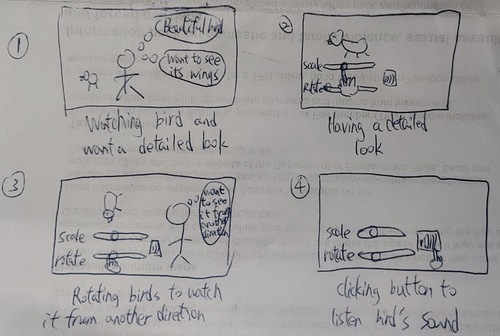 ①
Beautiful bird
want to see
its wings
Watching bird and
want a detailed look
②
scale
rotate
Having a detailed
look
③
want
to see
it from
another
direction
scale
rotate
Rotating birds to watch
it from another direction
④
scale
rotate
clicking button to
listen bird's sound